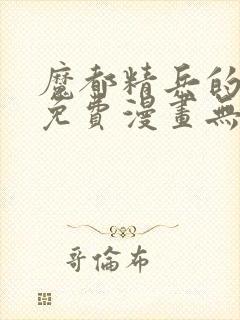 魔都精兵的
免費漫畫無
哥倫布